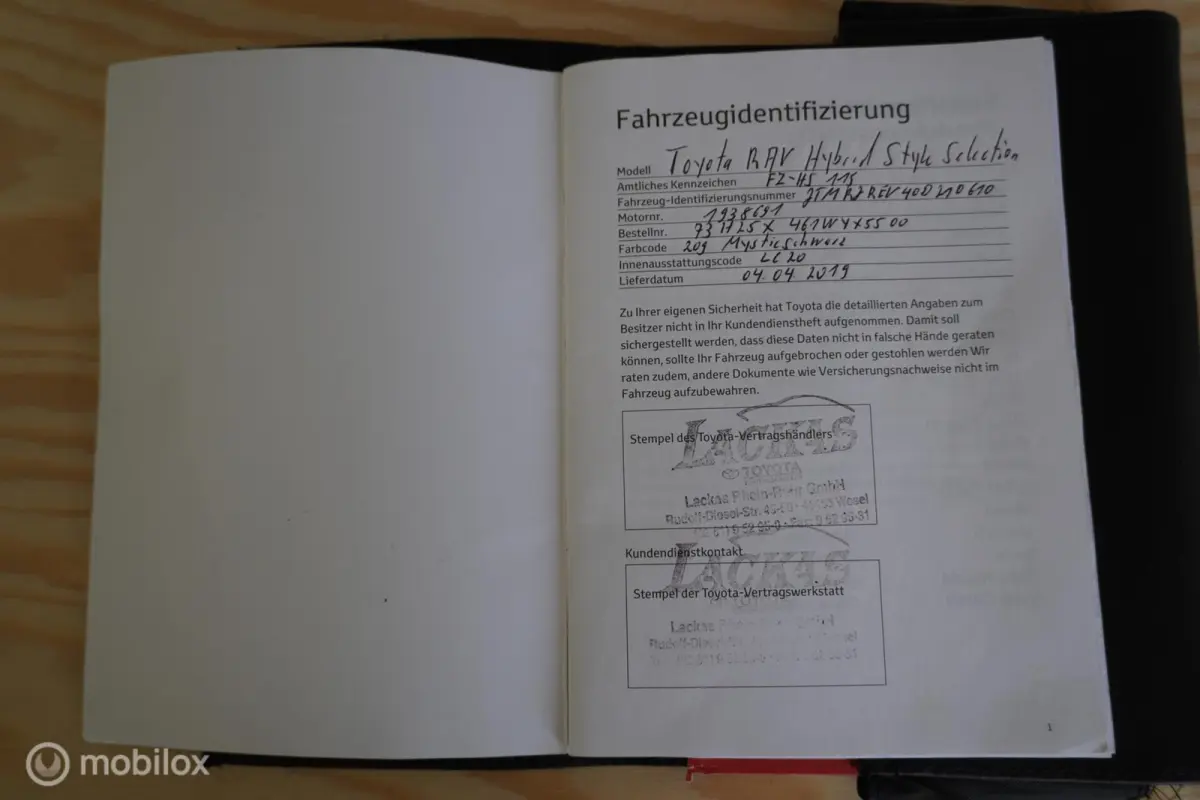 Fahrzeugidentifizierung
Modell Toyota RAV Hybrid Style Selection
Amtliches Kennzeichen FZ-HS 115
Fahrzeug-Identifizierungsnummer
Motornr. 1938691
Bestellnr.
Farbcode 209 Mysticschwarz
Innenausstattungscode LC20
Lieferdatum 04.04 2019
Zu Ihrer eigenen Sicherheit hat Toyota die detaillierten Angaben zum
Besitzer nicht in Ihr Kundendienstheft aufgenommen. Damit soll
sichergestellt werden, dass diese Daten nicht in falsche Hände geraten
können, sollte Ihr Fahrzeug aufgebrochen oder gestohlen werden Wir
raten zudem, andere Dokumente wie Versicherungsnachweise nicht im
Fahrzeug aufzubewahren.
Stempel des Toyota-Vertragshändlers
LACKAS
TOYOTA
Lackas Rhein-Ruhr GmbH
Rudolf-Diesel-Str. Wesel
Kundendienstkontakt
LACKAS
Stempel der Toyota-Vertragswerkstatt
Lackas
1
mobilox